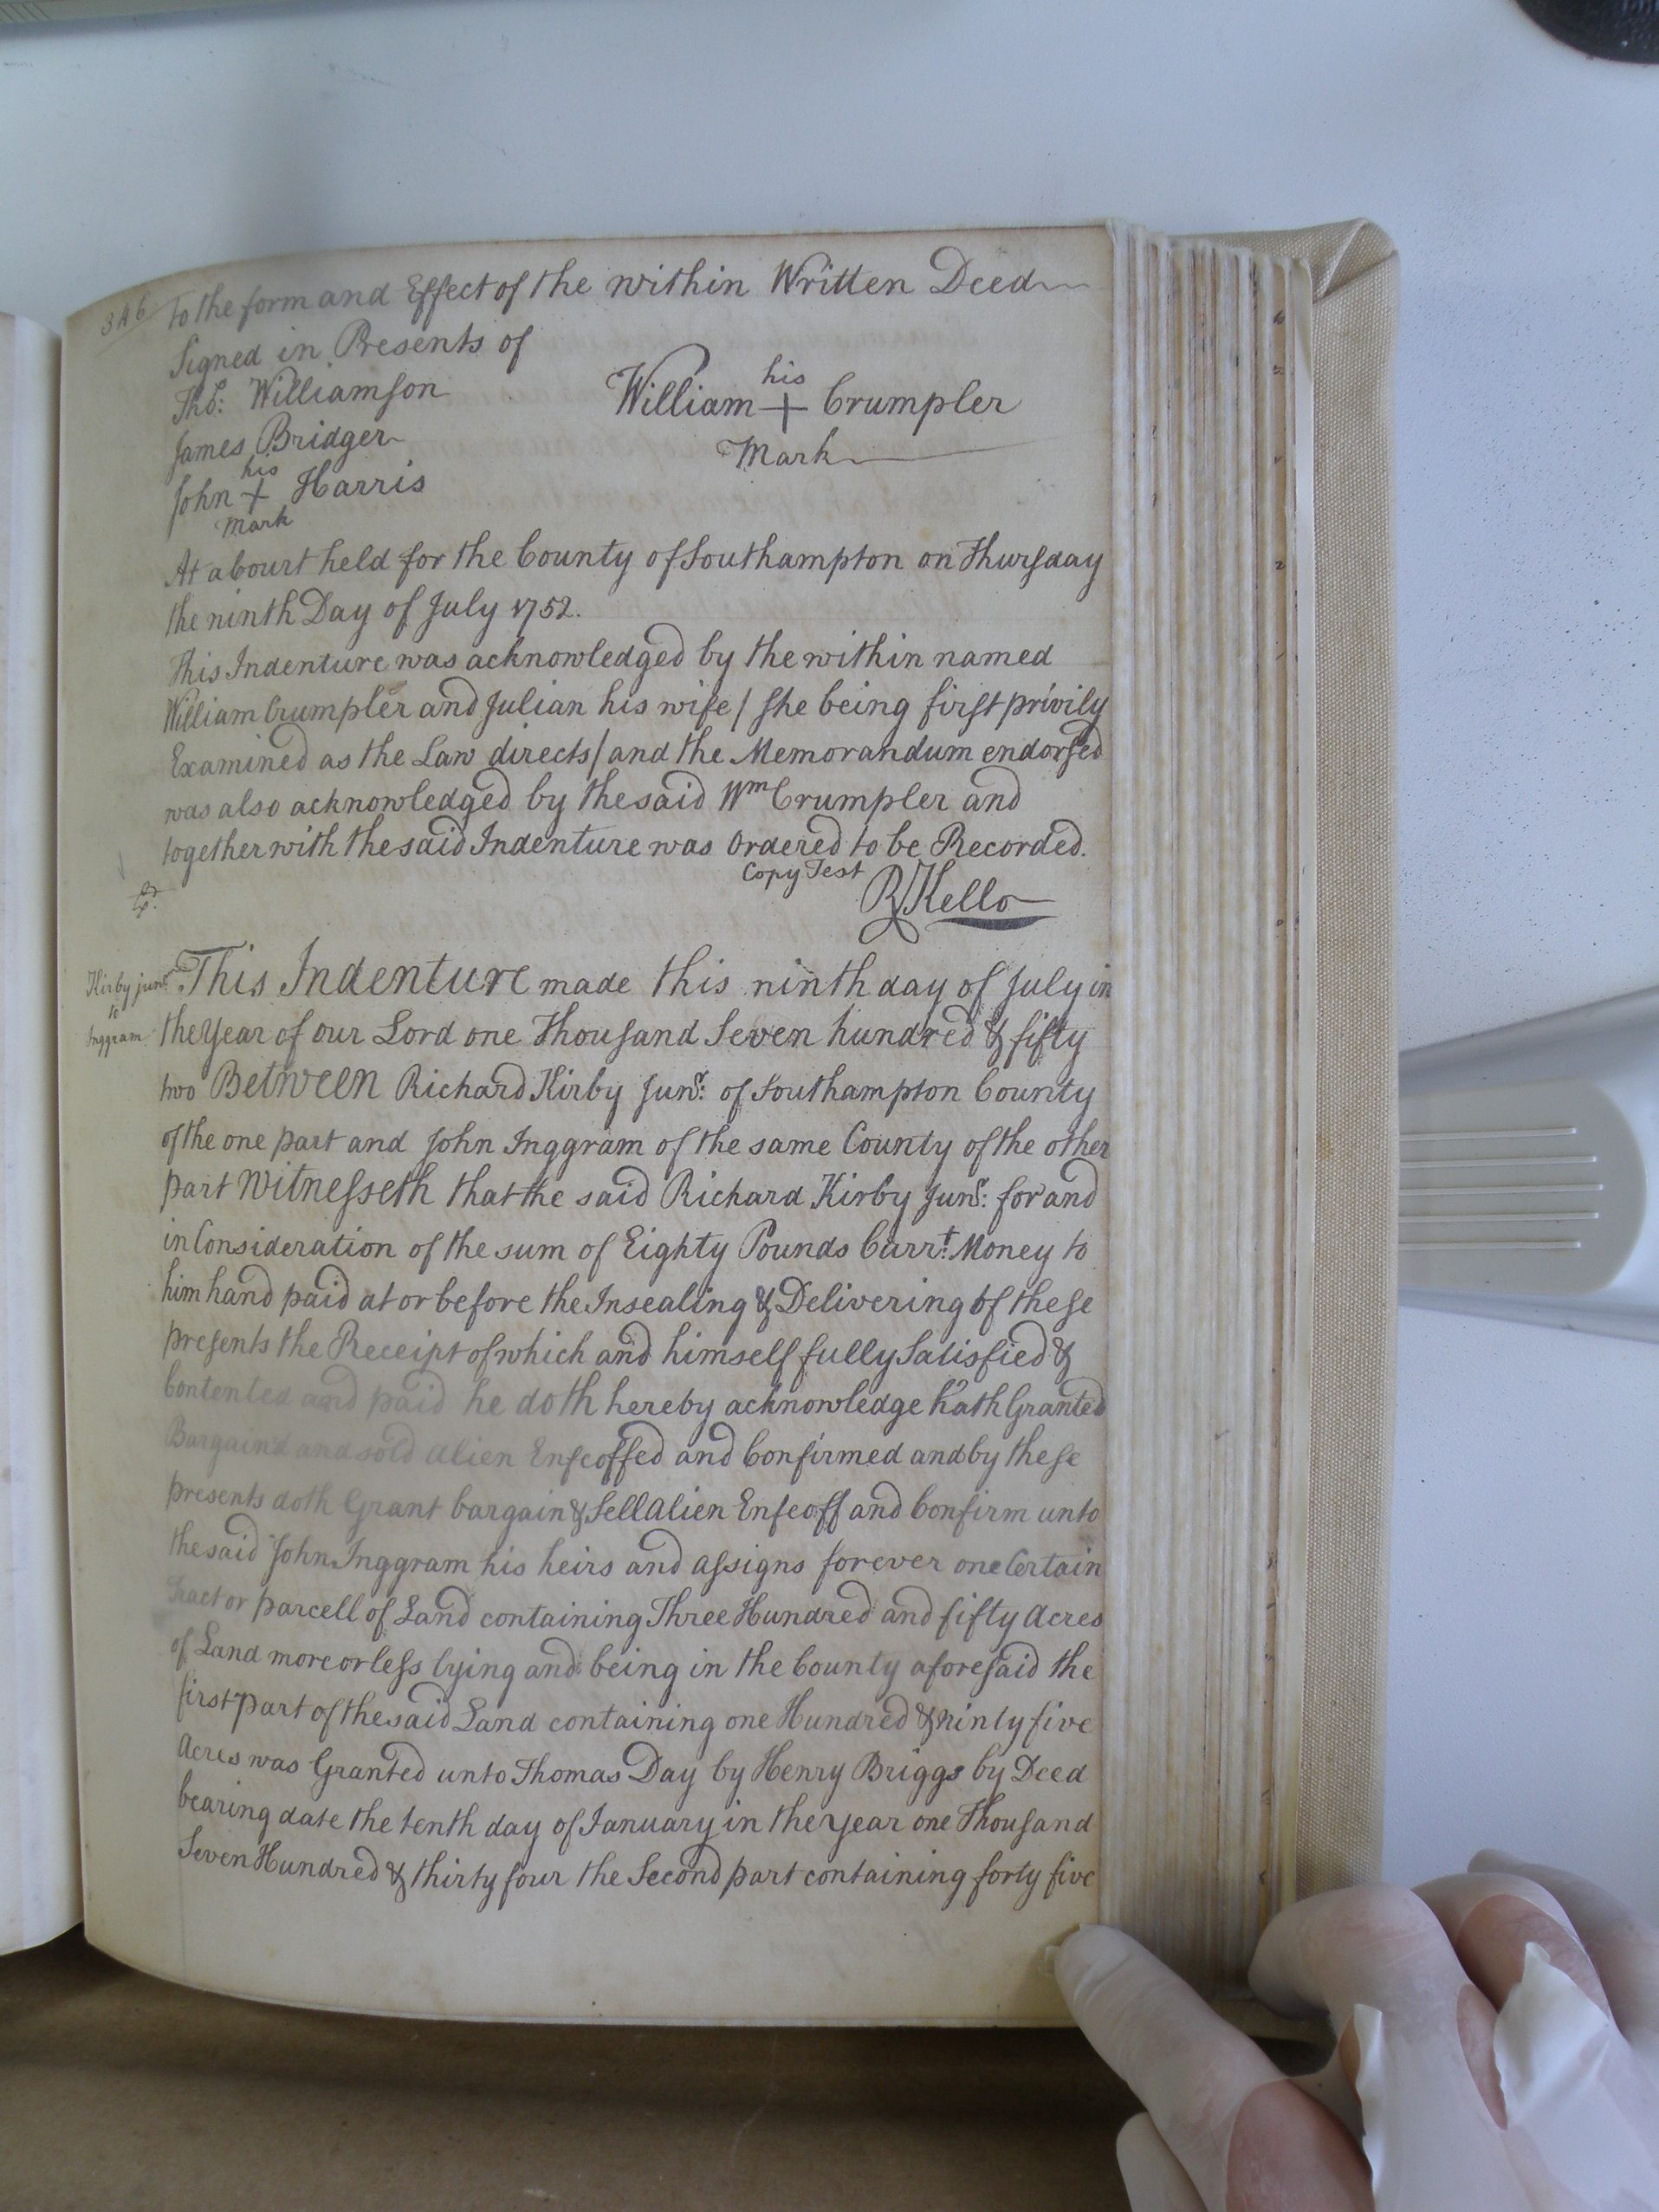 346
to the form and Effect of the within Written Deed
Signed in Presents of
Tho.s: Williamson
James Bridger
John his + Harris
mark
William his + Crumpler
Mark
At a Court held for the County of Southampton on Thursday
the ninth Day of July 1752.
This Indenture was acknowledged by the within named
William Crumpler and Julian his wife / she being first privily
Examined as the Law directs / and the Memorandum endorsed
was also acknowledged by the said Wm Crumpler and
together with the said Indenture was Ordered to be Recorded.
Copy Test
R Kello
Kirby junr
to
Inggram
This Indenture made this ninth day of July in
the Year of our Lord one Thousand Seven hundred & fifty
two Between Richard Kirby Junr: of Southampton County
of the one part and John Inggram of the same County of the other
part Witnesseth that the said Richard Kirby Junr: for and
in Consideration of the sum of Eighty Pounds Curr.t Money to
him hand paid at or before the Insealing & Delivering of these
presents the Receipt of which and himself fully Satisfied &
Contented and paid he doth hereby acknowledge hath Granted
Bargaind and sold Alien Enfeoffed and Confirmed and by these
presents doth Grant bargain & Sell Alien Enfeoff and Confirm unto
the said John Inggram his heirs and assigns forever one Certain
Tract or parcell of Land containing Three Hundred and fifty Acres
of Land more or less lying and being in the County aforesaid the
first part of the said Land containing one Hundred & ninty five
Acres was Granted unto Thomas Day by Henry Briggs by Deed
bearing date the tenth day of January in the year one Thousand
Seven Hundred & thirty four the Second part containing forty five